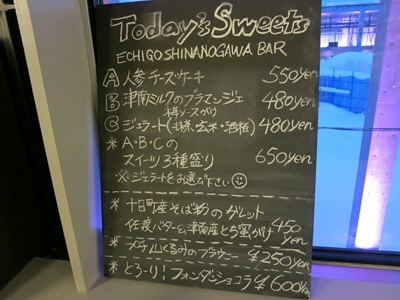 Today's Sweets
ECHIGOSHINANOGAWA BAR
A 人参チーズケーキ 550yen
B 津南ミルクのブラマンジェ 480yen
苺ソースがけ
C ジェラート(抹茶・玄米・酒粕) 480yen
* A・B・Cの
スイーツ3種盛り 650yen
※ジェラートをお選び下さい
* 十日町産そば粉のガレット
佐渡バター&津南産とち蜜がけ 450yen
* プチ くるみのブラウニー ¥250yen
* とろーり!フォンダンショコラ ¥600yen